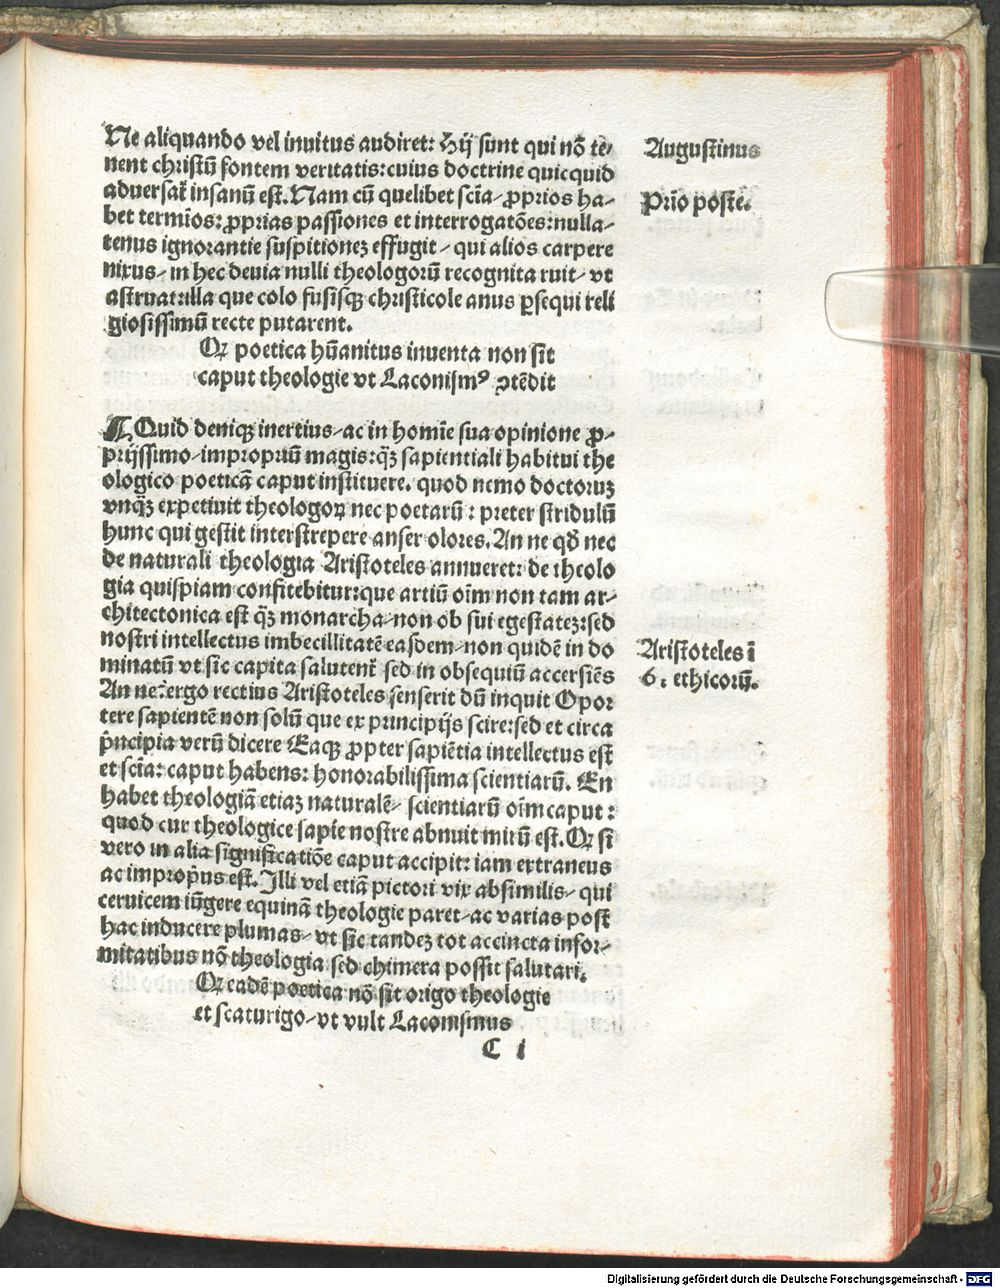 Ne aliquando vel inuitus audiret: Hij sunt qui nō te⸗
nent christū fontem veritatis: cuius doctrine quicquid
aduersat᷑ insanū est. Nam cū quelibet scīa ꝓprios ha⸗
bet termīos: ꝓprias passiones et interrogatōes: nulla⸗
tenus ignorantie suspitionez effugit / qui alios carpere
nixus / in hec deuia nulli theologorū recognita ruit / vt
astruat illa que colo fusisqꝫ christicole anus ꝑsequi reli
giosissimū recte putarent.
Augustinus
Prīo poste.
Qꝛ poetica hūanitus inuenta non sit
caput theologie vt Laconismꝰ ꝯtēdit
¶ Quid deniqꝫ inertius / ac in homīe sua opinione ꝓ⸗
prijssimo / impropriū magis: qꝫ̄ sapientiali habitui the
ologico poeticā caput instituere. quod nemo doctoruꝫ
vnqꝫ̄ expetiuit theologoꝝ nec poetarū: preter stridulū
hunc qui gestit interstrepere anser olores. An ne qđ nec
de naturali theologia Aristoteles annueret: de theolo
gia quispiam confitebitur: que artiū oīm non tam ar⸗
chitectonica est qꝫ̄ monarcha / non ob sui egestateꝫ: sed
nostri intellectus imbecillitatē easdem / non quidē in do
minatū vt sic capita salutent᷑ sed in obsequiū accersiēs
An ne ergo rectius Aristoteles senserit dū inquit Opor
tere sapientē non solū que ex principijs scire: sed et circa
p̄ncipia verū dicere Eaqꝫ ꝓpter sapiētia intellectus est
et scīa: caput habens: honorabilissima scientiarū. En
habet theologiā etiaꝫ naturalē / scientiarū oīm caput:
quod cur theologice sapīe nostre abnuit mirū est. Qꝛ si
vero in alia significatiōe caput accipit: iam extraneus
ac improp̄us est. Illi vel etiā pictori vix absimilis / qui
ceruicem iūgere equinā theologie paret / ac varias post
hac inducere plumas / vt sic tandeꝫ tot accincta infor⸗
mitatibus nō theologia sed chimera possit salutari.
Aristoteles ī
6. ethicorū.
Qꝛ eadē poetica nō sit origo theologie
et scaturigo / vt vult Laconismus
C i
Digitalisierung gefördert durch die Deutsche Forschungsgemeinschaft - DFG